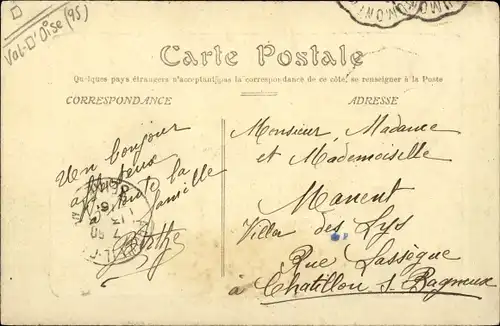 Val-D'Oise (95)
Carte Postale
Quelques pays étrangers n'acceptant pas la correspondance de ce côté, se renseigner à la Poste
CORRESPONDANCE
ADRESSE
Un bonjour
affectueux
à toute la
famille
Monsieur, Madame
et Mademoiselle
Manent
Villa des Lys
Rue Lasségue
à Chatillon s. Bagneux